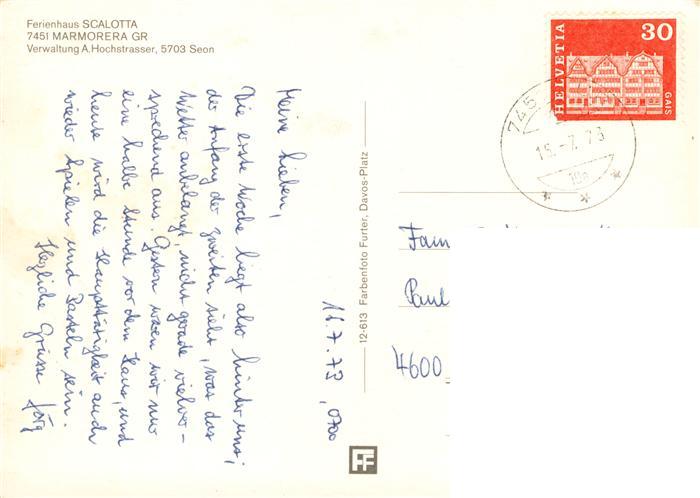 Ferienhaus SCALOTTA
7451 MARMORERA GR
Verwaltung A. Hochstrasser, 5703 Seon
HELVETIA
30
GAIS
745
15.-7.73
Meine Lieben,
Die erste Woche liegt also hinter uns;
der Anfang der zweiten sieht, was das
Wetter anbelangt, nicht gerade vielver-
sprechend aus. Gestern waren wir nur
eine halbe Stunde vor dem Haus, und
heute wird die Haupttätigkeit auch
wieder Spielen und Basteln sein.
Herzliche Grüsse Jörg
11.7.73, 0700
12-613 Farbenfoto Furter, Davos-Platz
FF
Fam
Paul
4600